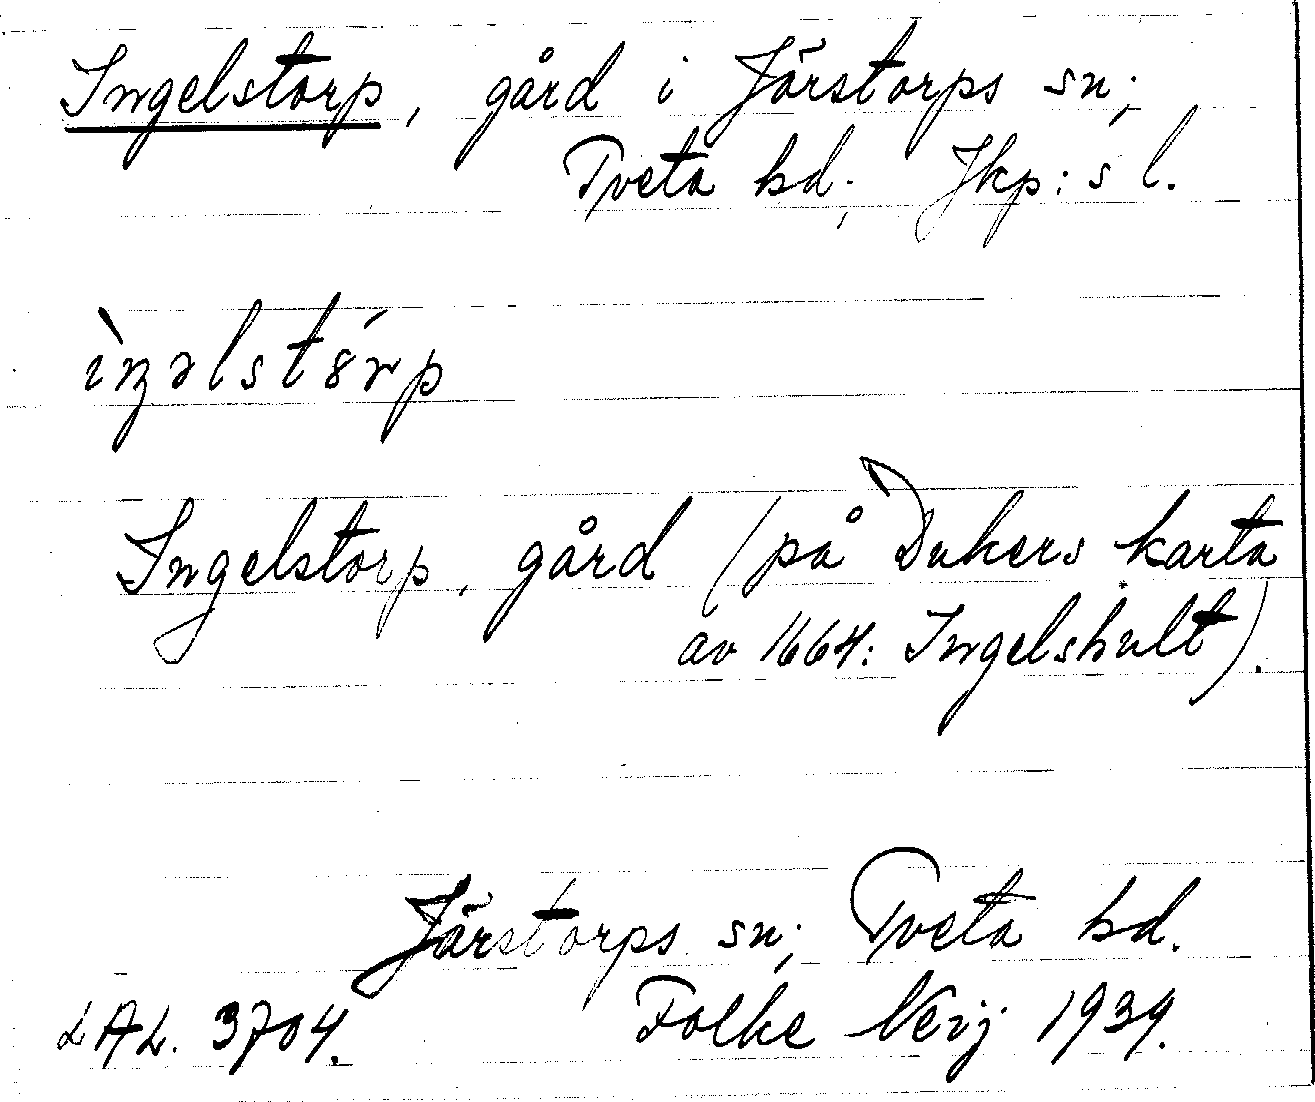 Ingelstorp, gård i Järstorps sn;
Tveta hd; Jkp:s l.
ìŋəlstórp
Ingelstorp, gård (på Dukers karta
av 1664: Ingelshult).
Järstorps sn; Tveta hd.
LAL. 3704. Folke 1939.